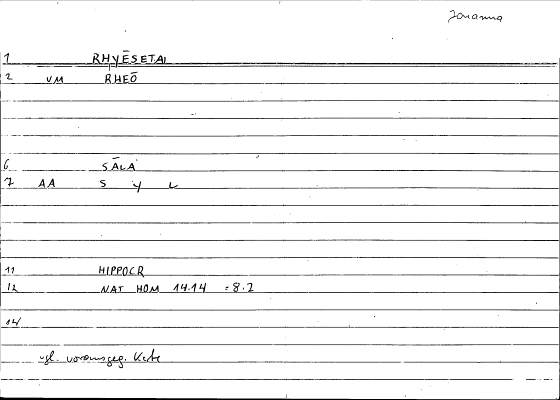 Johanna
1 RHYĒSETAI
2 VM RHEŌ
6 SĀLA
7 AA S Y L
11 HIPPOCR
12 NAT HOM 14.14 =8.2
14
vgl. vorausgeg. Karte